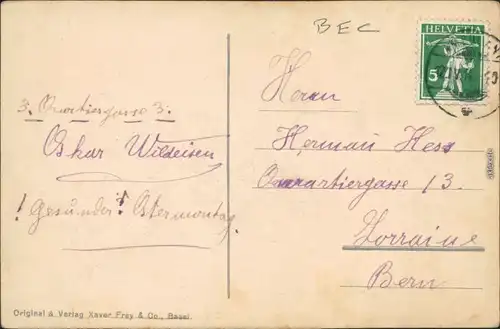 BEC
HELVETIA
5
3. Quartiergasse 3.
Oskar Wildeisen
! Gesunder! Ostermontag.
Herrn
Herman Hess
Quartiergasse 13.
Lorraine
Bern
Original & Verlag Xaver Frey & Co., Basel.